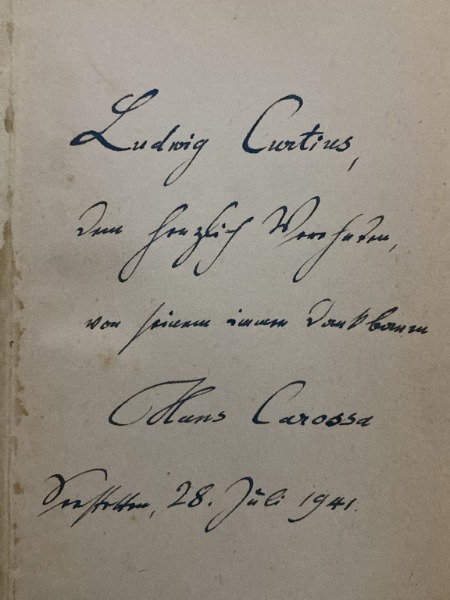 Ludwig Curtius,
dem herzlich Verehrten,
von seinem immer dankbaren
Hans Carossa
Seestetten, 28. Juli 1941.